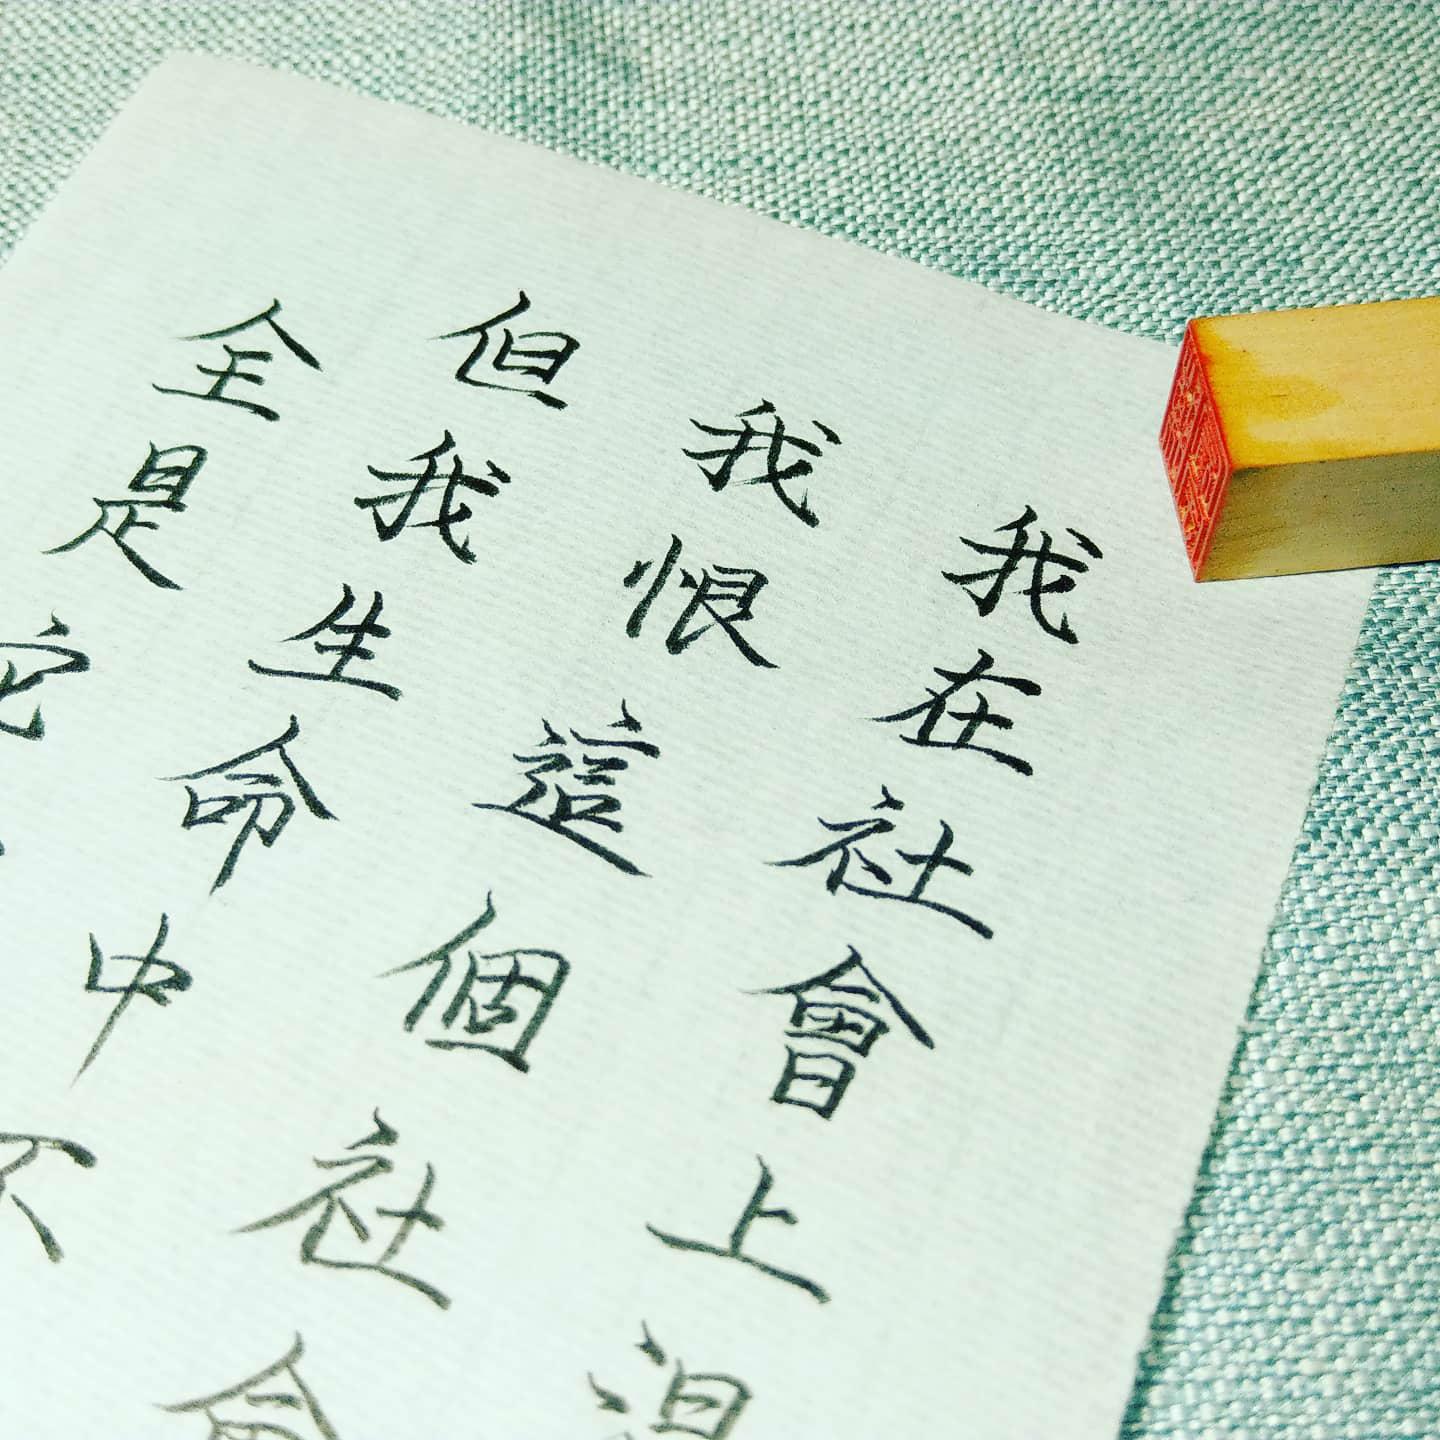 我在社會上
我恨這個社會
但我生命中
全是